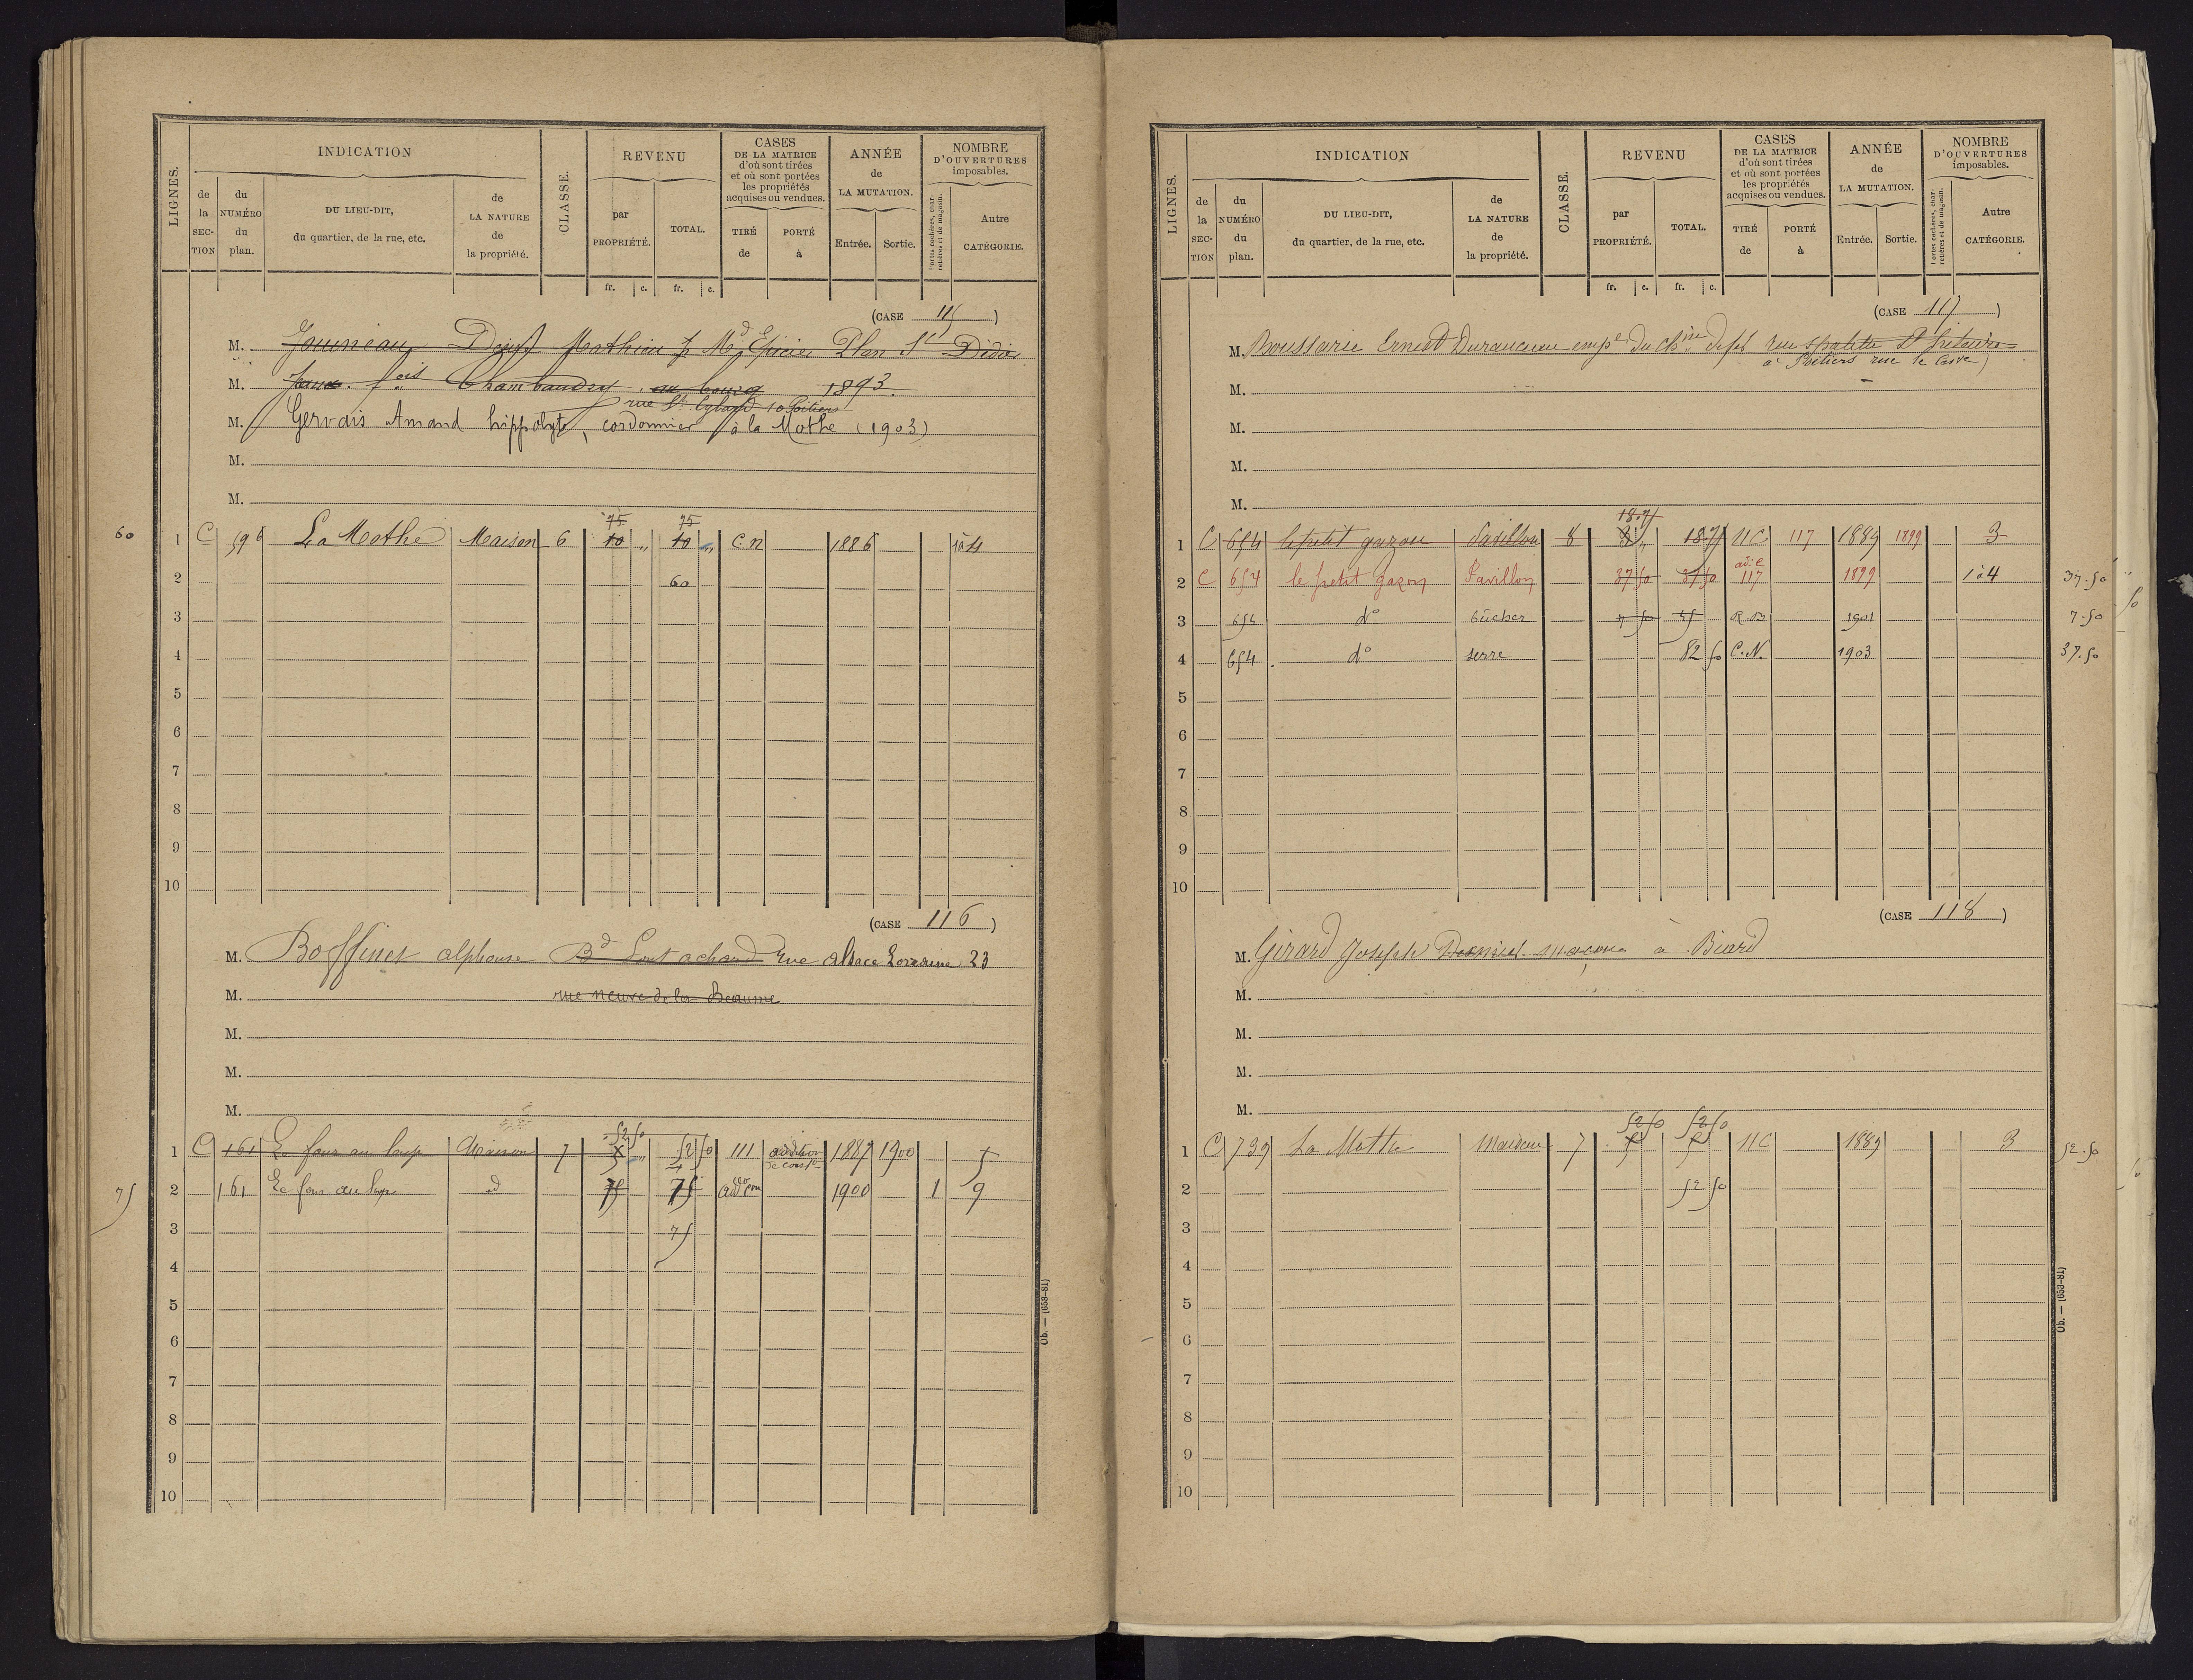 LIGNES.
INDICATION
de la SEC-TION
du NUMÉRO du plan.
DU LIEU-DIT, du quartier, de la rue, etc.
de LA NATURE de la propriété.
CLASSE.
REVENU
par PROPRIÉTÉ.
TOTAL.
fr. c. fr. c.
CASES DE LA MATRICE d'où sont tirées et où sont portées les propriétés acquises ou vendues.
TIRÉ de
PORTÉ à
ANNÉE de LA MUTATION.
Entrée. Sortie.
NOMBRE D'OUVERTURES imposables.
Portes cochères, char-retières et de magasin.
Autre CATÉGORIE.
(CASE 115)
M. Jouineau Mathieu Md Epicier Plan St Didier
M. fois Chambaudry au bourg 1893.
rue St Cybard 10 Poitiers
M. Gervais Amand hippolyte, cordonnier à la Mothe (1903)
M.
M.
75 75
60 1 C 596 La Mothe Maison 6 10 " 10 " C n 1886 1 à 4
2 60
3
4
5
6
7
8
9
10
(CASE 116)
M. Boffinet alphonse Bd Pont achard Rue alsace Lorraine 23
M. rue neuve de la Beaume
M.
M.
M.
52 50
1 C 161 Le four au loup Maison 7 52 50 111 addition de const 1887 1900
75 2 161 Le four au loup d 75 75 addon con 1900 1 9
3 75
4
5
6
7
8
9
10
Ob. — (653-81)
LIGNES.
INDICATION
de la SEC-TION
du NUMÉRO du plan.
DU LIEU-DIT, du quartier, de la rue, etc.
de LA NATURE de la propriété.
CLASSE.
REVENU
par PROPRIÉTÉ.
TOTAL.
fr. c. fr. c.
CASES DE LA MATRICE d'où sont tirées et où sont portées les propriétés acquises ou vendues.
TIRÉ de
PORTÉ à
ANNÉE de LA MUTATION.
Entrée. Sortie.
NOMBRE D'OUVERTURES imposables.
Portes cochères, char-retières et de magasin.
Autre CATÉGORIE.
(CASE 117)
M. Boussarie Ernest Duranceau empé du chin de fer rue
à Poitiers rue
M.
M.
M.
M.
18.75
1 C 654 le petit gazon Pavillon 8 18.75 NC 117 1889 1899 3
2 C 654 le petit gazon Pavillon 37 50 37 50 ad. C 117 1899 1 à 4 37.50
3 654 do bûcher 7 50 45 R.B 1901 7.50
4 654 do serre 82 50 C.N. 1903 37.50
5
6
7
8
9
10
(CASE 118)
M. Girard Joseph maçon à Biard
M.
M.
M.
M.
52 50 52 50
1 C 739 La Motte Maison 7 NC 1889 3 52.50
2 52 50
3
4
5
6
7
8
9
10
Ob. — (653-81)